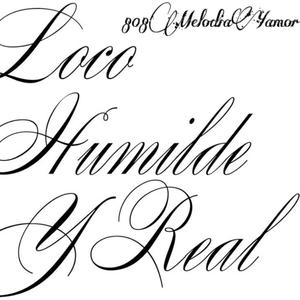 808 Melodia Yamor
Loco
Humilde
Y Real